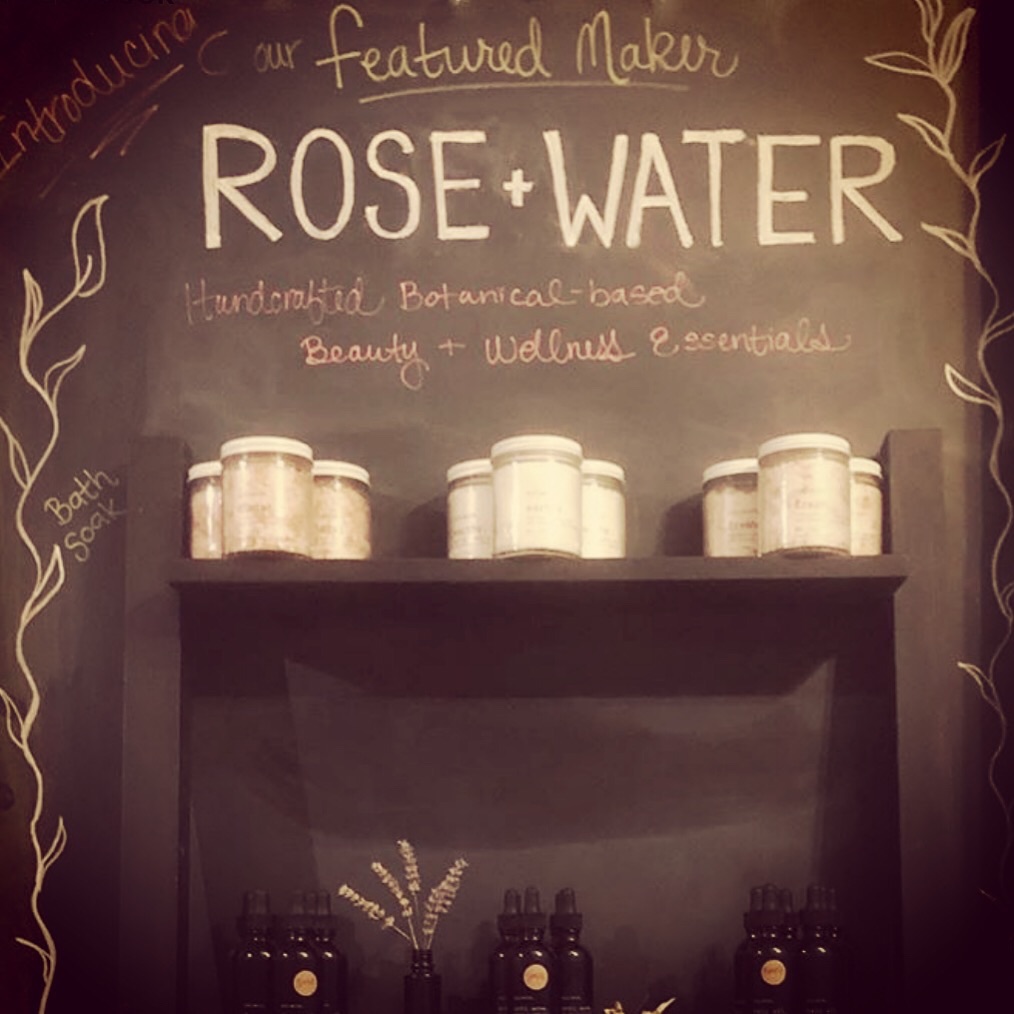 Introducing our Featured Maker
ROSE + WATER
Handcrafted Botanical-based
Beauty + Wellness Essentials
Bath
Soak